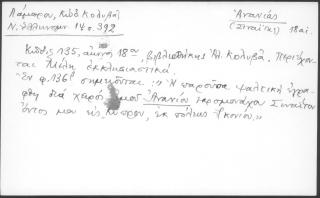 Λάμαρου, Κώδ. Κολυβᾶ
Ν. Ἑλληνομν. 14 σ. 392
Ἀνανίας
(Σιναΐτης) 18 αἰ.
Κώδιξ 135, αἰῶνος 18ου, βιβλιοθήκης Ἀλ. Κολυβᾶ. Περιέχον-
τας Μέλη ἐκκλησιαστικά.
Ἐν φ. 136 σημειοῦται: "Ἡ παροῦσα ψαλτική ἐγρά-
φη διά χειρός ἐμοῦ Ἀνανίου ἱερομονάχου Σιναΐτου
ὄντος μου εἰς Κύπρον, ἐκ πόλεως Ἰκονίου."